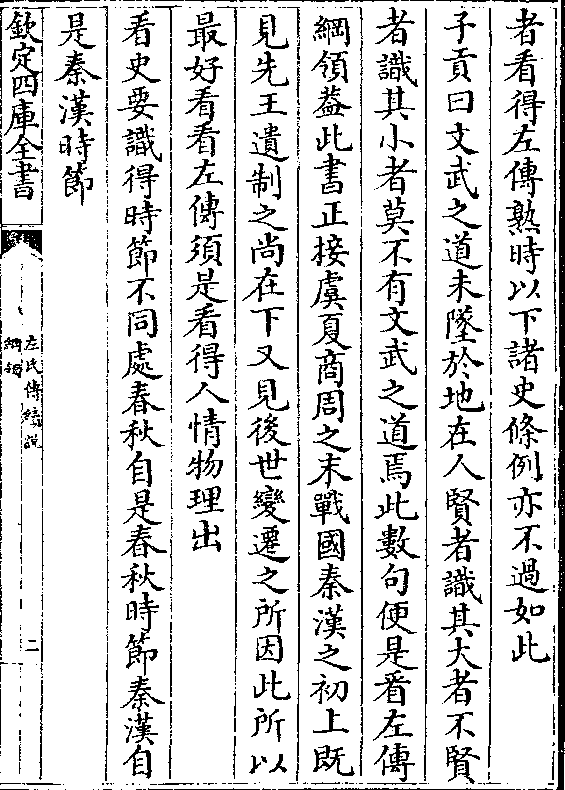 者看得左傳熟時以下諸史條例亦不過如此
子貢曰文武之道未墜於地在人賢者識其大者不賢
者識其小者莫不有文武之道焉此數句便是看左傳
綱領葢此書正接虞夏商周之末戰國秦漢之初上既
見先王遺制之尚在下又見後世變遷之所因此所以
最好看看左傳須是看得人情物理出
看史要識得時節不同處春秋自是春秋時節秦漢自
是秦漢時節
欽定四庫全書
左氏傳續說
綱領
二